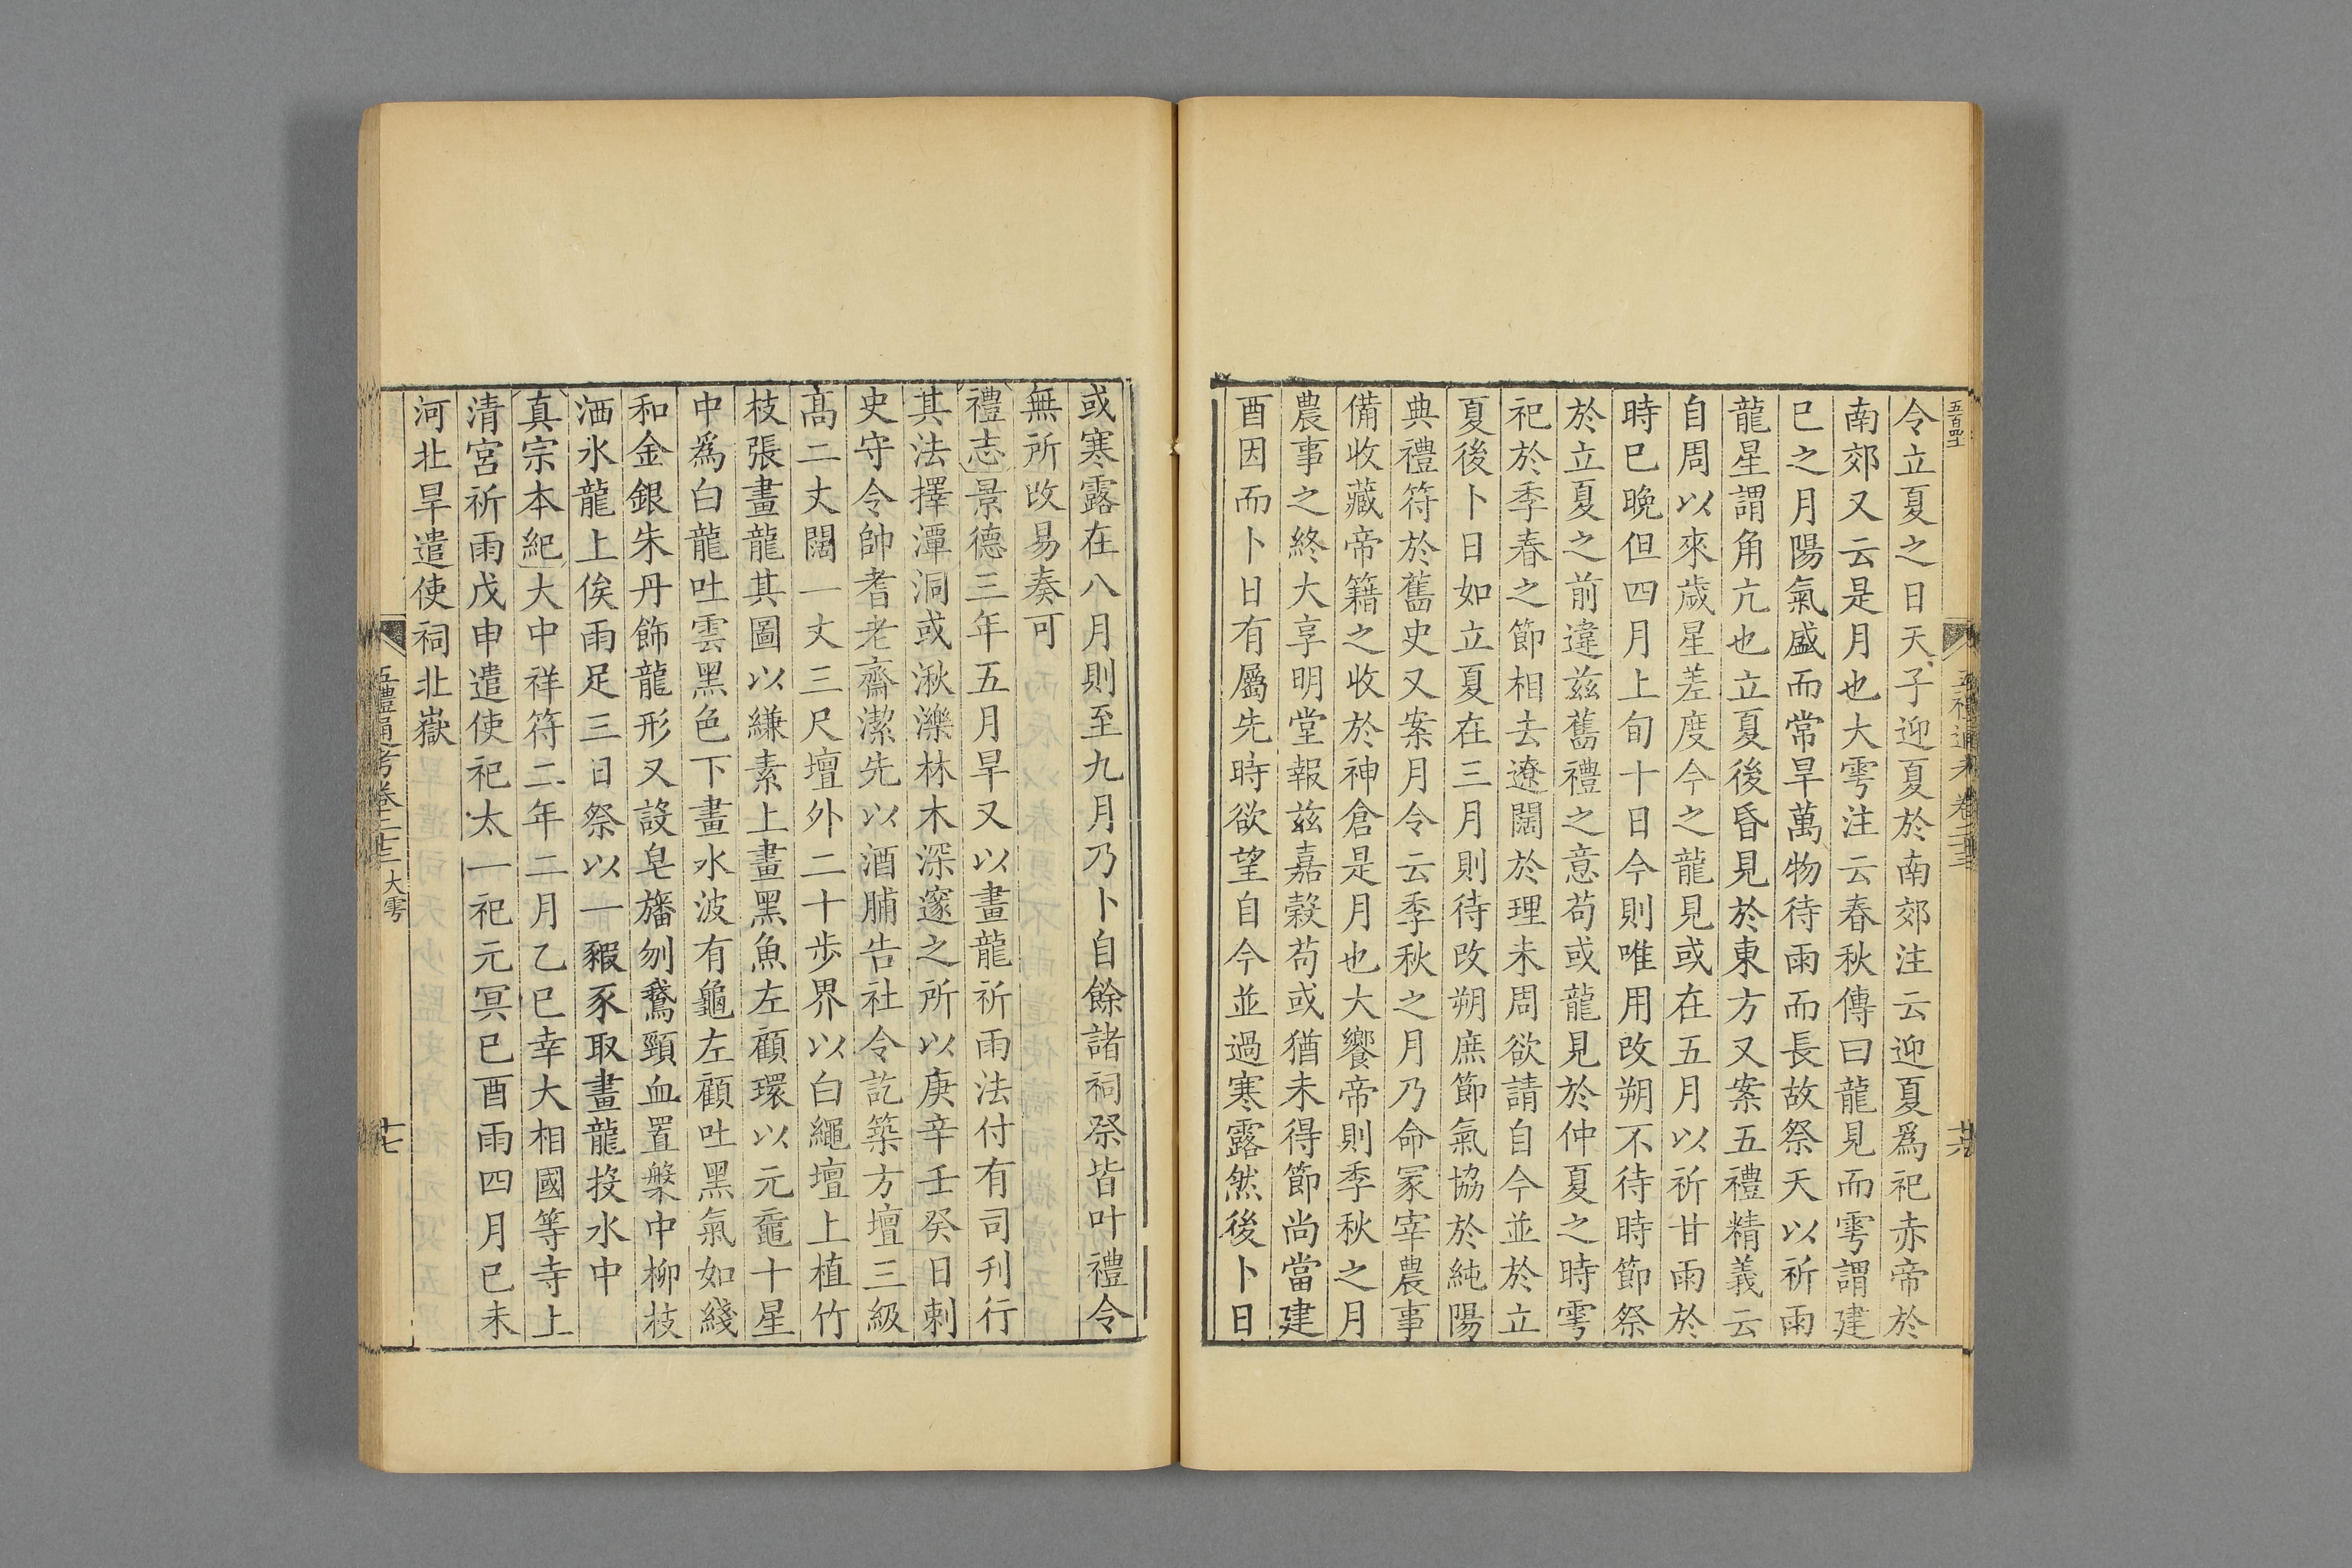 令立夏之日天子迎夏於南郊注云迎夏爲祀赤帝於
南郊又云是月也大雩注云春秋傳曰龍見而雩謂建
巳之月陽氣盛而常旱萬物待雨而長故祭天以祈雨
龍星謂角亢也立夏後昏見於東方又案五禮精義云
自周以來歲星差度今之龍見或在五月以祈甘雨於
時已晚但四月上旬十日今則唯用改朔不待時節祭
於立夏之前違兹舊禮之意苟或龍見於仲夏之時雩
祀於季春之節相去遼闊於理未周欲請自今並於立
夏後卜日如立夏在三月則待改朔庶節氣協於純陽
典禮符於舊史又案月令云季秋之月乃命冢宰農事
備收藏帝籍之收於神倉是月也大饗帝則季秋之月
農事之終大享明堂報兹嘉穀苟或猶未得節尚當建
酉因而卜日有屬先時欲望自今並過寒露然後卜日
或寒露在八月則至九月乃卜自餘諸祠祭皆叶禮令
無所改易奏可
禮志景德三年五月旱又以畫龍祈雨法付有司刊行
其法擇潭洞或湫濼林木深邃之所以庚辛壬癸日刺
史守令帥耆老齋潔先以酒脯告社令訖築方壇三級
高二丈闊一丈三尺壇外二十步界以白繩壇上植竹
枝張畫龍其圖以縑素上畫黑魚左顧環以元黿十星
中爲白龍吐雲黑色下畫水波有龜左顧吐黑氣如綫
和金銀朱丹飾龍形又設皂旛刎鵞頸血置槃中柳枝
洒水龍上俟雨足三日祭以一豭豕取畫龍投水中
真宗本紀大中祥符二年二月乙巳幸大相國等寺上
清宮祈雨戊申遣使祀太一祀元冥己酉雨四月己未
河北旱遣使祠北嶽
五禮通考卷二十三 大雩
十七